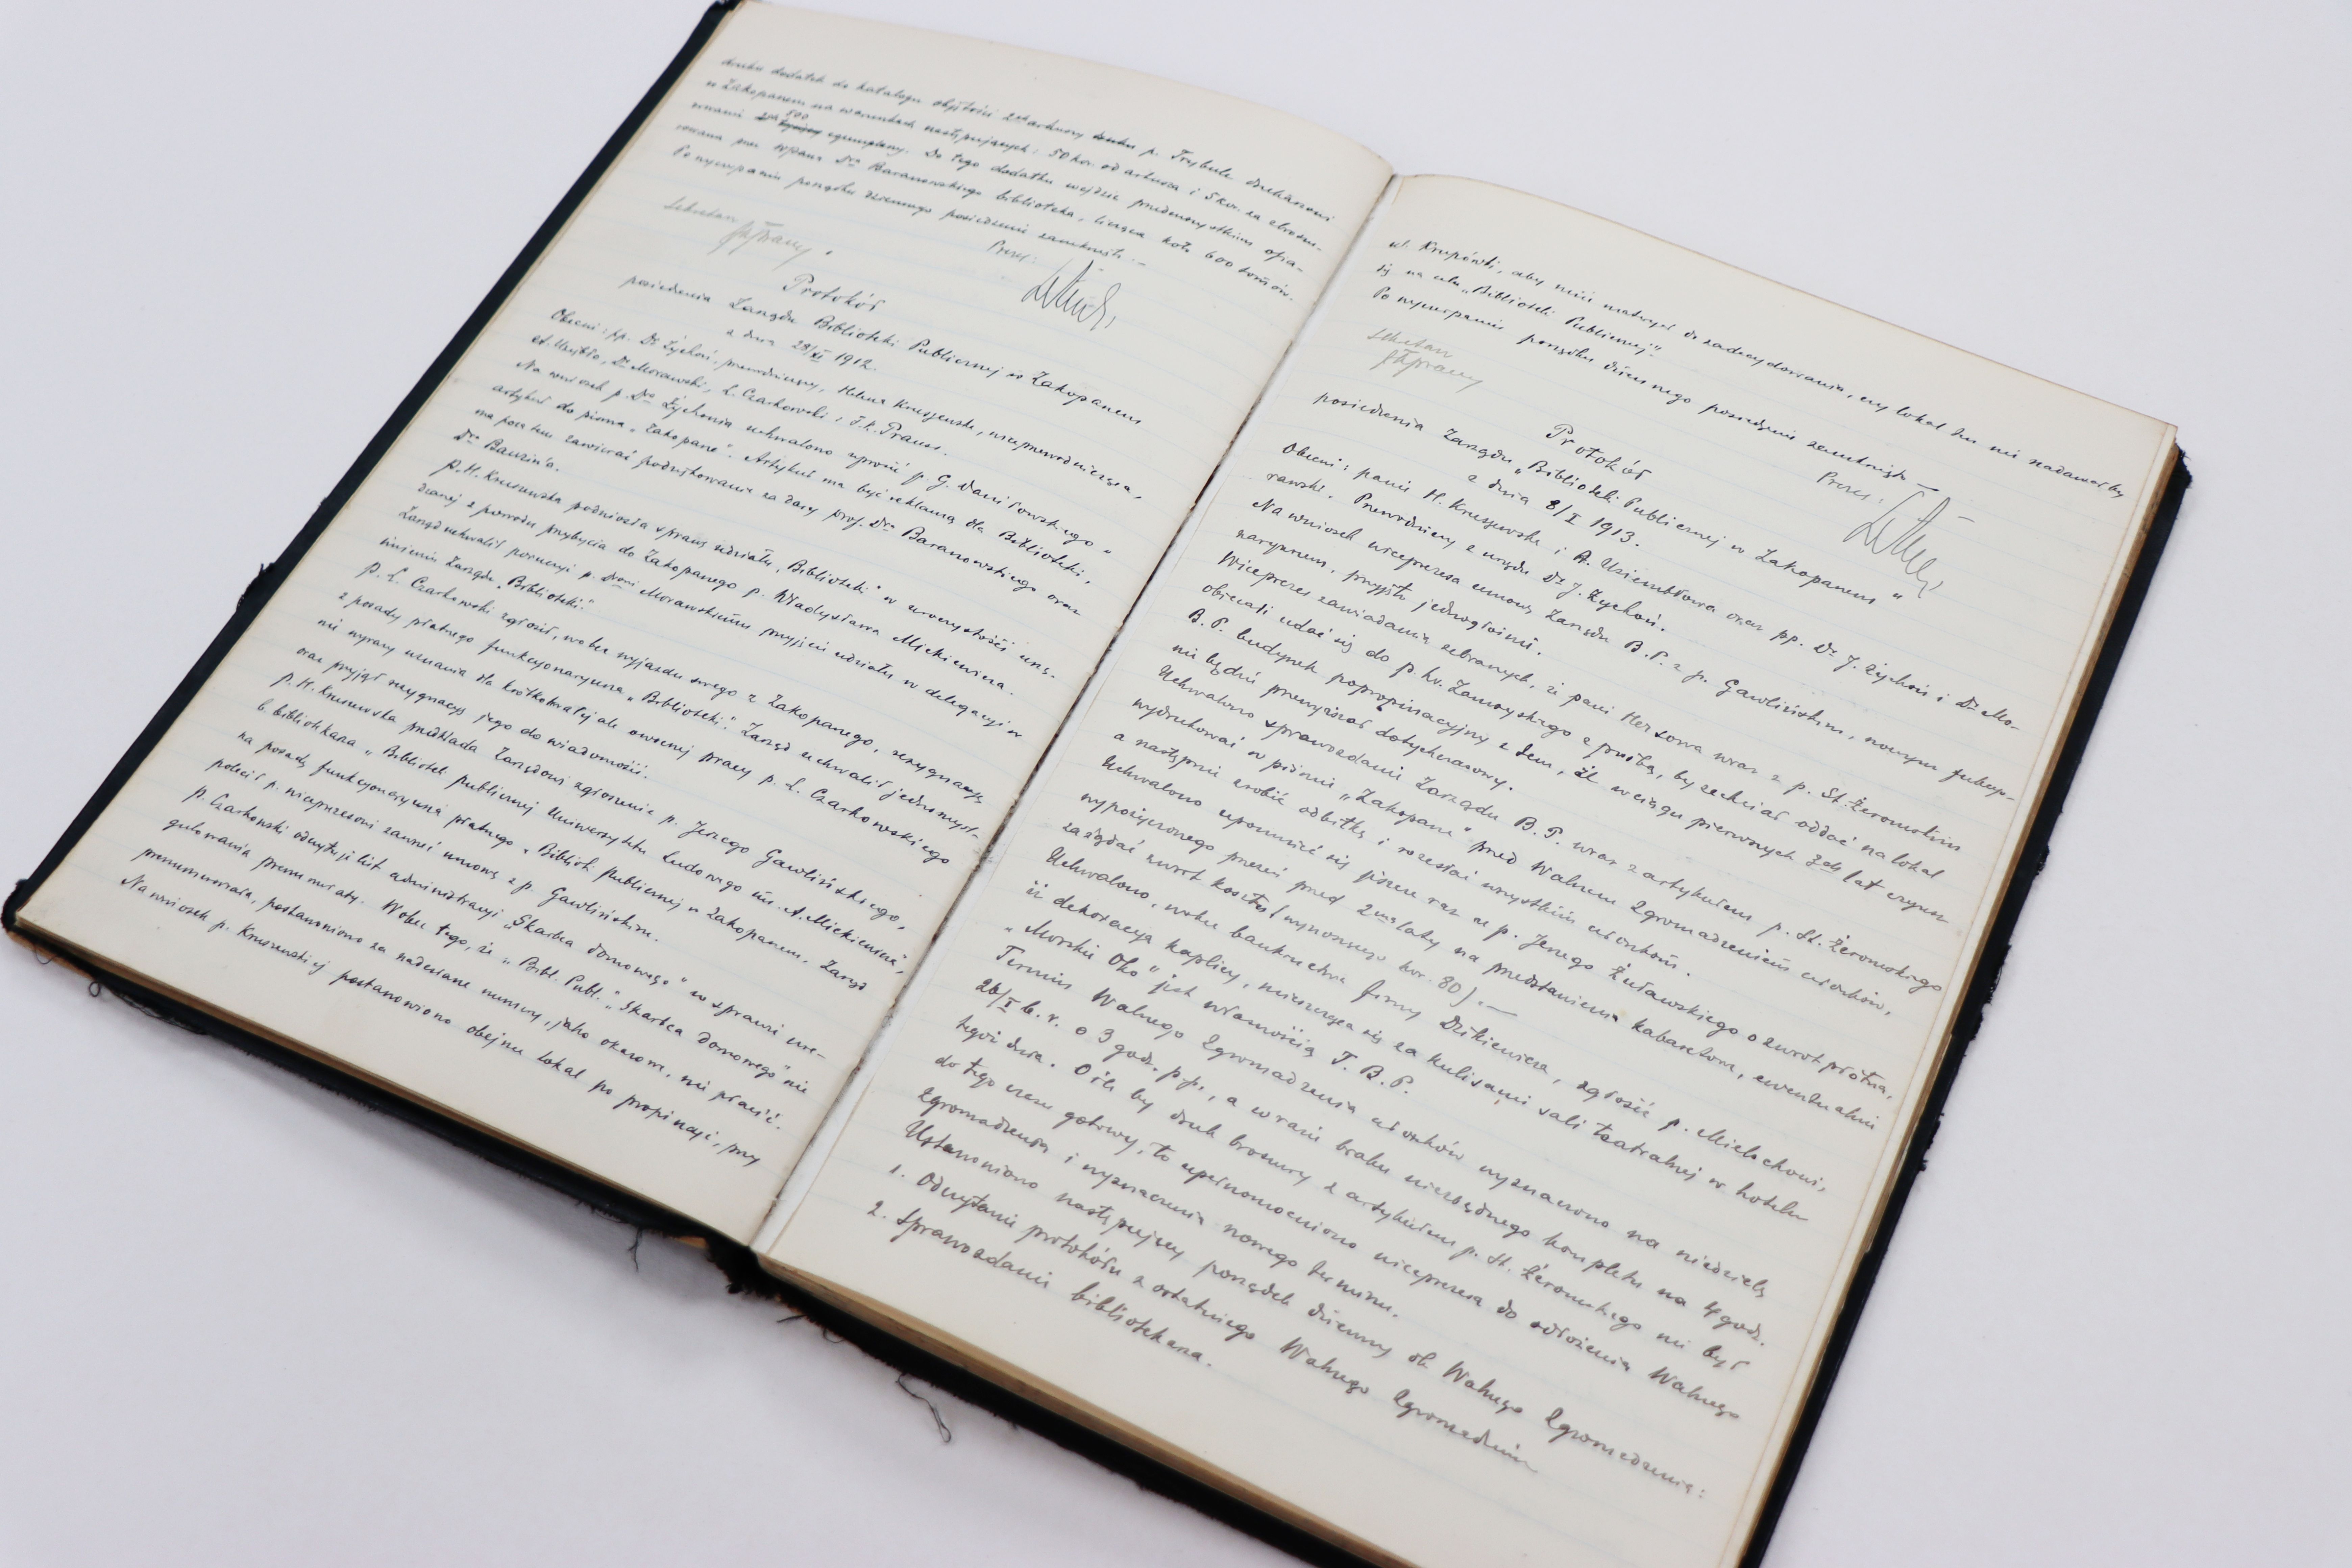 druku dodatek do katalogu objętości 2ch arkuszy druku p. Trybule drukarzowi
w Zakopanem na warunkach następujących: 50 kor. od arkusza i 5 kor. za zbroszu-
rowanie 500 egzemplarzy. Do tego dodatku wejdzie przedewszystkiem ofia-
rowana przez Wpana Dra Baranowskiego biblioteka, licząca koło 600 tomów.
Po wyczerpaniu porządku dziennego posiedzenie zamknięto. —
Sekretarz
Prezes:
Protokół
posiedzenia Zarządu Biblioteki Publicznej w Zakopanem
z dnia 28/XI 1912.
Obecni: pp. Dr Żychoń, przewodniczący, Helena Kruszewska, wiceprzewodnicząca,
A. Uziębło, Dr Morawski, L. Czarkowski i F. K. Prauss.
Na wniosek p. Dra Żychonia uchwalono uprosić p. G. Daniłowskiego o
artykuł do pisma „Zakopane". Artykuł ma być reklamą dla Biblioteki,
ma poza tem zawierać podziękowanie za dary prof. Dra Baranowskiego oraz
Dra Bauzin'a.
P. H. Kruszewska podniosła sprawę udziału „Biblioteki" w uroczystości urzą-
dzanej z powodu przybycia do Zakopanego p. Władysława Mickiewicza.
Zarząd uchwalił poruczyć p. Drowi Morawskiemu przyjęcie udziału w delegacyi w
imieniu Zarządu „Biblioteki".
P. L. Czarkowski zgłosił, wobec wyjazdu swego z Zakopanego, rezygnacyę
z posady płatnego funkcyonaryusza „Biblioteki". Zarząd uchwalił jednomyśl-
nie wyrazy uznania dla krótkotrwałej ale owocnej pracy p. L. Czarkowskiego
oraz przyjął rezygnacyę jego do wiadomości.
P. H. Kruszewska przedkłada Zarządowi zgłoszenie p. Jerzego Gawlińskiego,
b. bibliotekarza „Bibliotek publicznej Uniwersytetu Ludowego im. A. Mickiewicza",
na posadę funkcyonaryusza płatnego „Bibliot. publicznej w Zakopanem. Zarząd
polecił p. wiceprezesowi zawrzeć umowę z p. Gawlińskim.
P. Czarkowski odczytuje list administracyi „Skarbca domowego" w sprawie ure-
gulowania prenumeraty. Wobec tego, że „Bibl. Publ." „Skarbca Domowego" nie
prenumerowała, postanowiono za nadesłane numery, jako okazowe, nie płacić.
Na wniosek p. Kruszewskiej postanowiono obejrzeć lokal po propinacyi, przy
ul. Krupówki, aby módz zadecydowania, czy lokal ten nie nadawałby
się na cele „Biblioteki Publicznej".
Po wyczerpaniu porządku dziennego posiedzenie zamknięto —
Sekretarz
Prezes:
Protokół
posiedzenia Zarządu „Biblioteki Publicznej w Zakopanem"
z dnia 8/I 1913.
Obecni: panie H. Kruszewska i A. Uziembłowa oraz pp. Dr J. Żychoń i Dr Mo-
rawski. Przewodniczy z urzędu Dr J. Żychoń.
Na wniosek wiceprezesa umowę Zarządu B. P. z p. Gawlińskim, nowym funkcyo-
naryuszem, przyjęto jednogłośnie.
Wiceprezes zawiadamia zebranych, że pani Herzowa wraz z p. St. Żeromskim
obiecali udać się do p. hr. Zamoyskiego z prośbą, by zechciał oddać na lokal
B. P. budynek popropinacyjny z tem, że w ciągu pierwszych 2ch lat czynsz
nie będzie przewyższał dotychczasowy.
Uchwalono sprawozdanie Zarządu B. P. wraz z artykułem p. St. Żeromskiego
wydrukować w piśmie „Zakopane" przed Walnem Zgromadzeniem członków,
a następnie zrobić odbitkę i rozesłać wszystkim członkom.
Uchwalono upomnieć się jeszcze raz u p. Jerzego Żuławskiego o zwrot płótna,
wypożyczonego przezeń przed 2ma laty na przedstawienia kabaretowe, ewentualnie
zażądać zwrot kosztów (wynoszący kor. 80). —
Uchwalono, wobec bankructwa firmy Dzikiewicza, zgłosić p. Mielechowi,
iż dekoracya kaplicy, mieszcząca się za kulisami sali teatralnej w hotelu
„Morskie Oko" jest własnością T. B. P.
Termin Walnego Zgromadzenia członków wyznaczono na niedzielę
26/I b. r. o 3 godz. p. p., a w razie braku niezbędnego kompletu na 4 godz.
tegoż dnia. O ile by druk broszury z artykułem p. St. Żeromskiego nie był
do tego czasu gotowy, to upełnomocniono wiceprezesa do odłożenia Walnego
Zgromadzenia i wyznaczenia nowego terminu.
Ustanowiono następujący porządek dzienny dla Walnego Zgromadzenia:
1. Odczytanie protokółu z ostatniego Walnego Zgromadzenia
2. Sprawozdanie bibliotekarza.